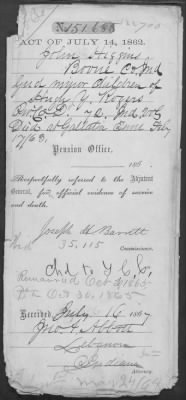 No 151683
ACT OF JULY 14, 1862.
John Higgins
Boone Co Ind
Gud minor Children of
Hugh Y. Rogers
Pvt Co. 72 Ind Vols
Died at Gallatin Tenn Feby
17/63
Pension Office,
186 .
Respectfully referred to the Adjutant
General, for official evidence of service
and death.
Joseph H Barrett
35,115 Commissioner.
Oct 30 1865
Received July 16 1867
Jno A Abbott
Lebanon
Indiana
Attorney